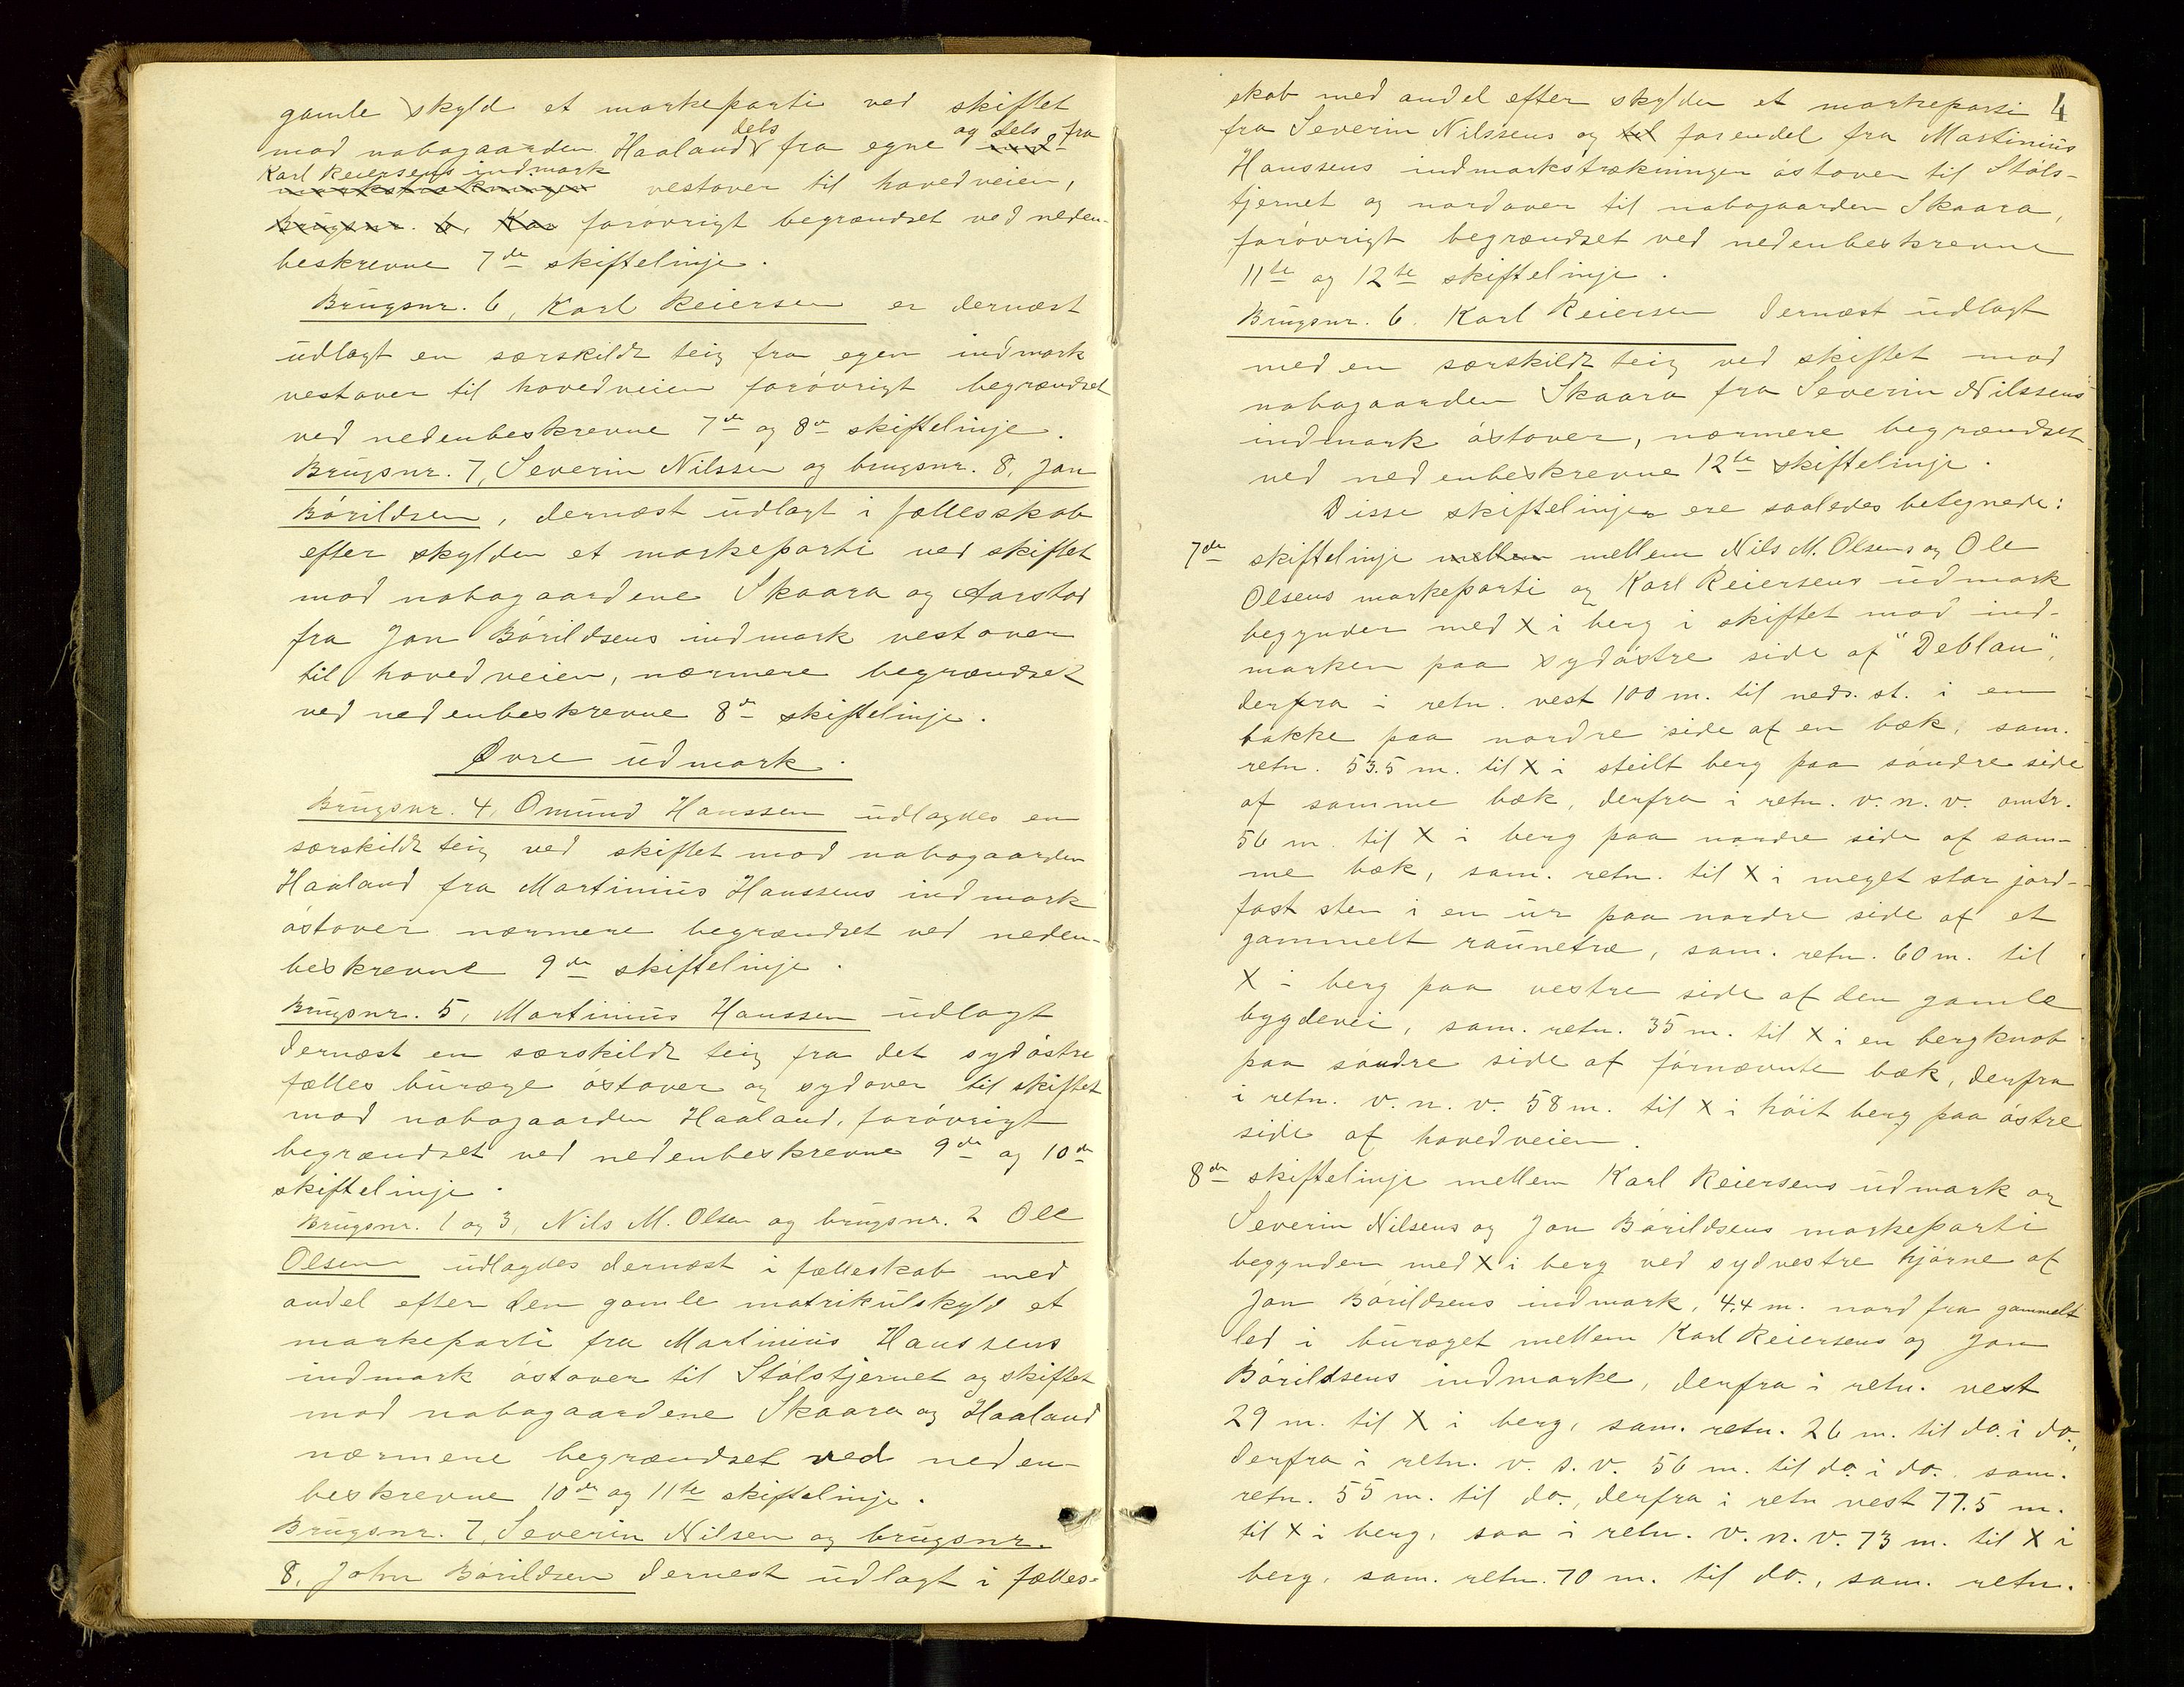 gamle skyld et markeparti ved skiftet
mod nabogaarden Haaland dels fra egne og dels fra
Karl Reiersens indmark
vestover til hovedveien,
Brugsnr. 6, Kar forøvrigt begrændset ved neden-
beskrevne 7de skiftelinje.
Brugsnr. 6, Karl Reiersen er dernæst
udlagt en særskildt teig fra egen indmark
vestover til hovedveien forøvrigt begrændset
ved nedenbeskrevne 7de og 8de skiftelinje.
Brugsnr. 7, Severin Nilssen og brugsnr. 8, Jon
Børildsen, dernæst udlagt i fællesskab
efter skylden et markeparti ved skiftet
mod nabogaardene Skaara og Aarstad
fra Jon Børildsens indmark vestover
til hovedveien, nærmere begrændset
ved nedenbeskrevne 8de skiftelinje.
Øvre udmark.
Brugsnr. 4, Omund Hanssen udlagdes en
særskildt teig ved skiftet mod nabogaarden
Haaland fra Martinius Hanssens indmark
østover nærmere begrændset ved neden-
beskrevne 9de skiftelinje.
Brugsnr. 5, Martinius Hanssen udlagt
dernæst en særskildt teig fra det sydøstre
fælles buræge østover og sydover til skiftet
mod nabogaarden Haaland, forøvrigt
begrændset ved nedenbeskrevne 9de og 10de
skiftelinje.
Brugsnr. 1 og 3, Nils M. Olsen og brugsnr. 2 Ole
Olsen udlagdes dernæst i fælleskab med
andel efter den gamle matrikulskyld et
markeparti fra Martinius Hanssens
indmark østover til Stølstjernet og skiftet
mod nabogaardene Skaara og Haaland
nærmere begrændset ved neden-
beskrevne 10de og 11te skiftelinje.
Brugsnr. 7, Severin Nilsen og brugsnr.
8, John Børildsen dernest udlagt i fælles-
4
skab med andel efter skylden et markeparti
fra Severin Nilssens og til forendel fra Martinius
Hanssens indmarkstrækninger østover til Støls-
tjernet og nordover til nabogaarden Skaara,
forøvrigt begrændset ved nedenbeskrevne
11te og 12te skiftelinje.
Brugsnr. 6. Karl Reiersen dernæst udlagt
med en særskildt teig ved skiftet mod
nabogaarden Skaara fra Severin Nilssens
indmark østover, nærmere begrændset
ved nedenbeskrevne 12te skiftelinje.
Disse skiftelinjer ere saaledes betegnede:
7de skiftelinje mellem mellem Nils M. Olsens og Ole
Olsens markeparti og Karl Reiersens udmark
begynder med X i berg i skiftet mod ind-
marken paa sydøstre side af "Deblau",
derfra i retn. vest 100 m. til neds. st. i en
bakke paa nordre side af en bæk, sam.
retn. 53.5 m. til X i steilt berg paa søndre side
af samme bæk, derfra i retn. v. n. v. omtr.
56 m. til X i berg paa nordre side af sam-
me bæk, sam. retn. til X i meget stor jord-
fast sten i en ur paa nordre side af et
gammelt raunetræ, sam. retn. 60 m. til
X i berg paa vestre side af den gamle
bygdevei, sam. retn. 35 m. til X i en bergknob
paa søndre side af førnævnte bæk, derfra
i retn. v. n. v. 58 m. til X i høit berg paa østre
side af hovedveien.
8de skiftelinje mellem Karl Reiersens udmark og
Severin Nilsens og Jon Børildsens markeparti
begynder med X i berg ved sydvestre hjørne af
Jon Børildsens indmark, 4.4 m. nord fra gammelt
led i buræget mellem Karl Reiersens og Jon
Børildsens indmarke, derfra i retn. vest
29 m. til X i berg, sam. retn. 26 m. til do. i do.,
derfra i retn. v. s. v. 56 m. til do. i do., sam.
retn. 55 m. til do., derfra i retn vest 77.5 m.
til X i berg, saa i retn. v. n. v. 73 m. til X i
berg, sam. retn. 70 m. til do., sam. retn.